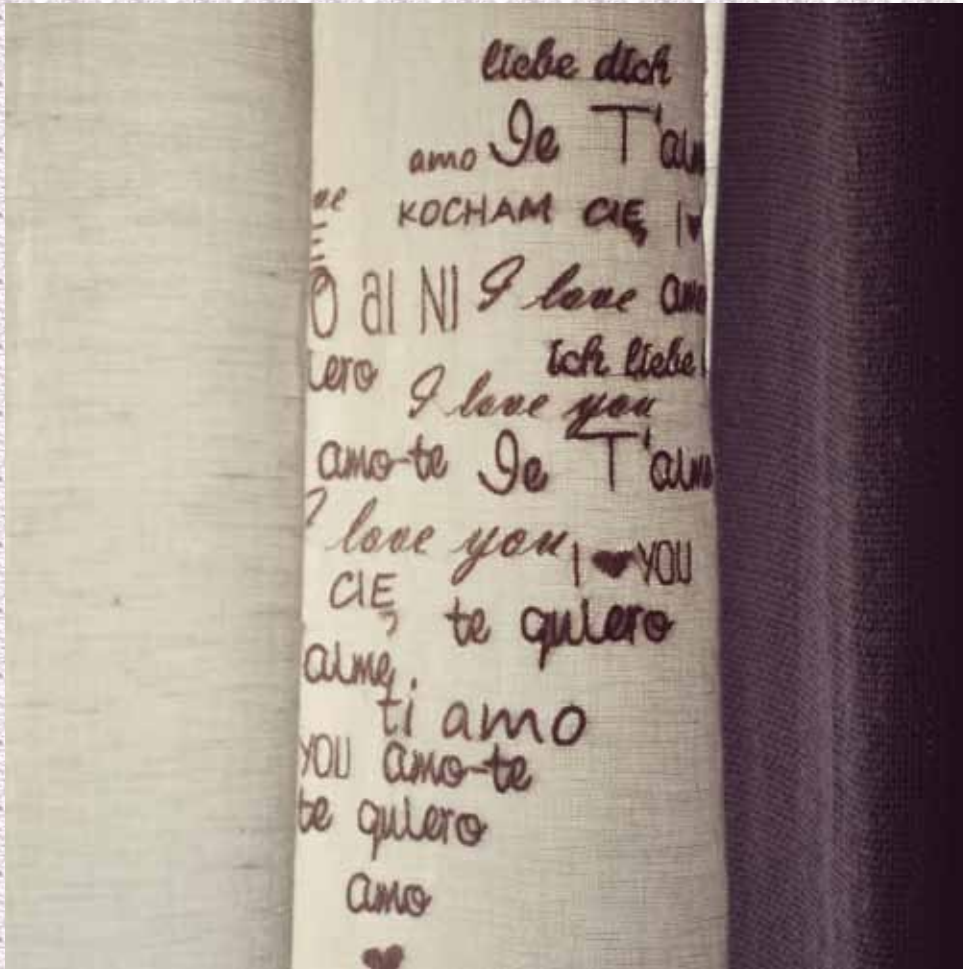 liebe dich
amo Je T'aim
KOCHAM CIĘ I ♥
O aI NI I love amo
iero
ich liebe
I love you
amo-te Je T'aime
I love you
I ♥ YOU
CIĘ
te quiero
aime
ti amo
YOU amo-te
te quiero
amo
♥